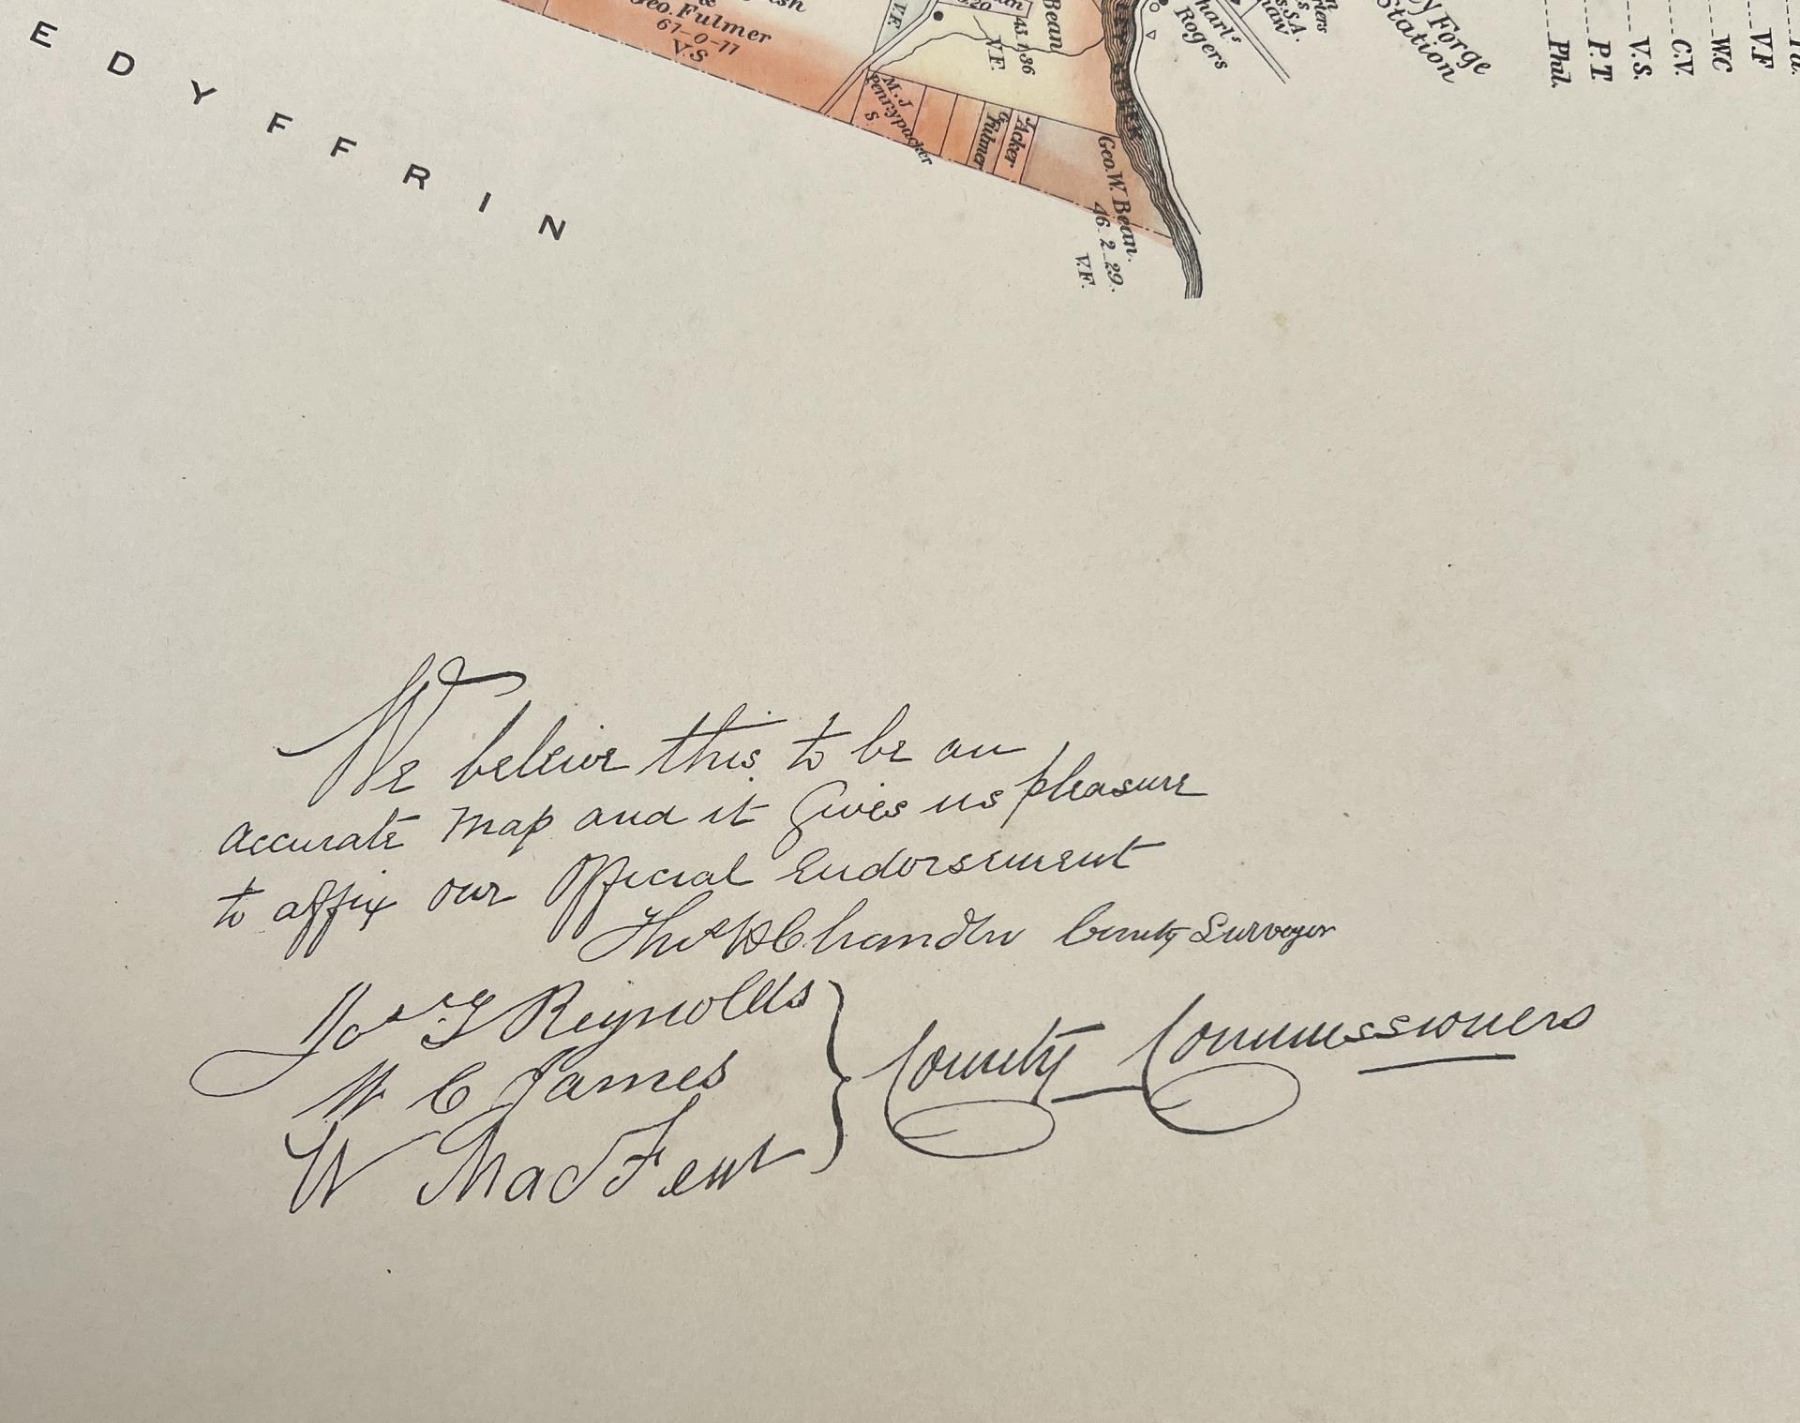 E D Y F F R I N
Geo. Fulmer
67-0-77
V.S
V.F.
20
43.1.36
V.F.
Bean
M.J
Pennypacker
S.
G.
Fulmer
J.
Acker
Geo.W. Bean.
46.2_29.
V.F.
Rogers
S.A.
Forge
Station
Phil.
P.T
V.S.
C.V.
W.C
V.F
We beleive this to be an
accurate Map and it Gives us pleasure
to affix our Official Endorsement
Thos W Chandler County Surveyor
Jos T Reynolds
W C James
W MacFeat
County Commissioners